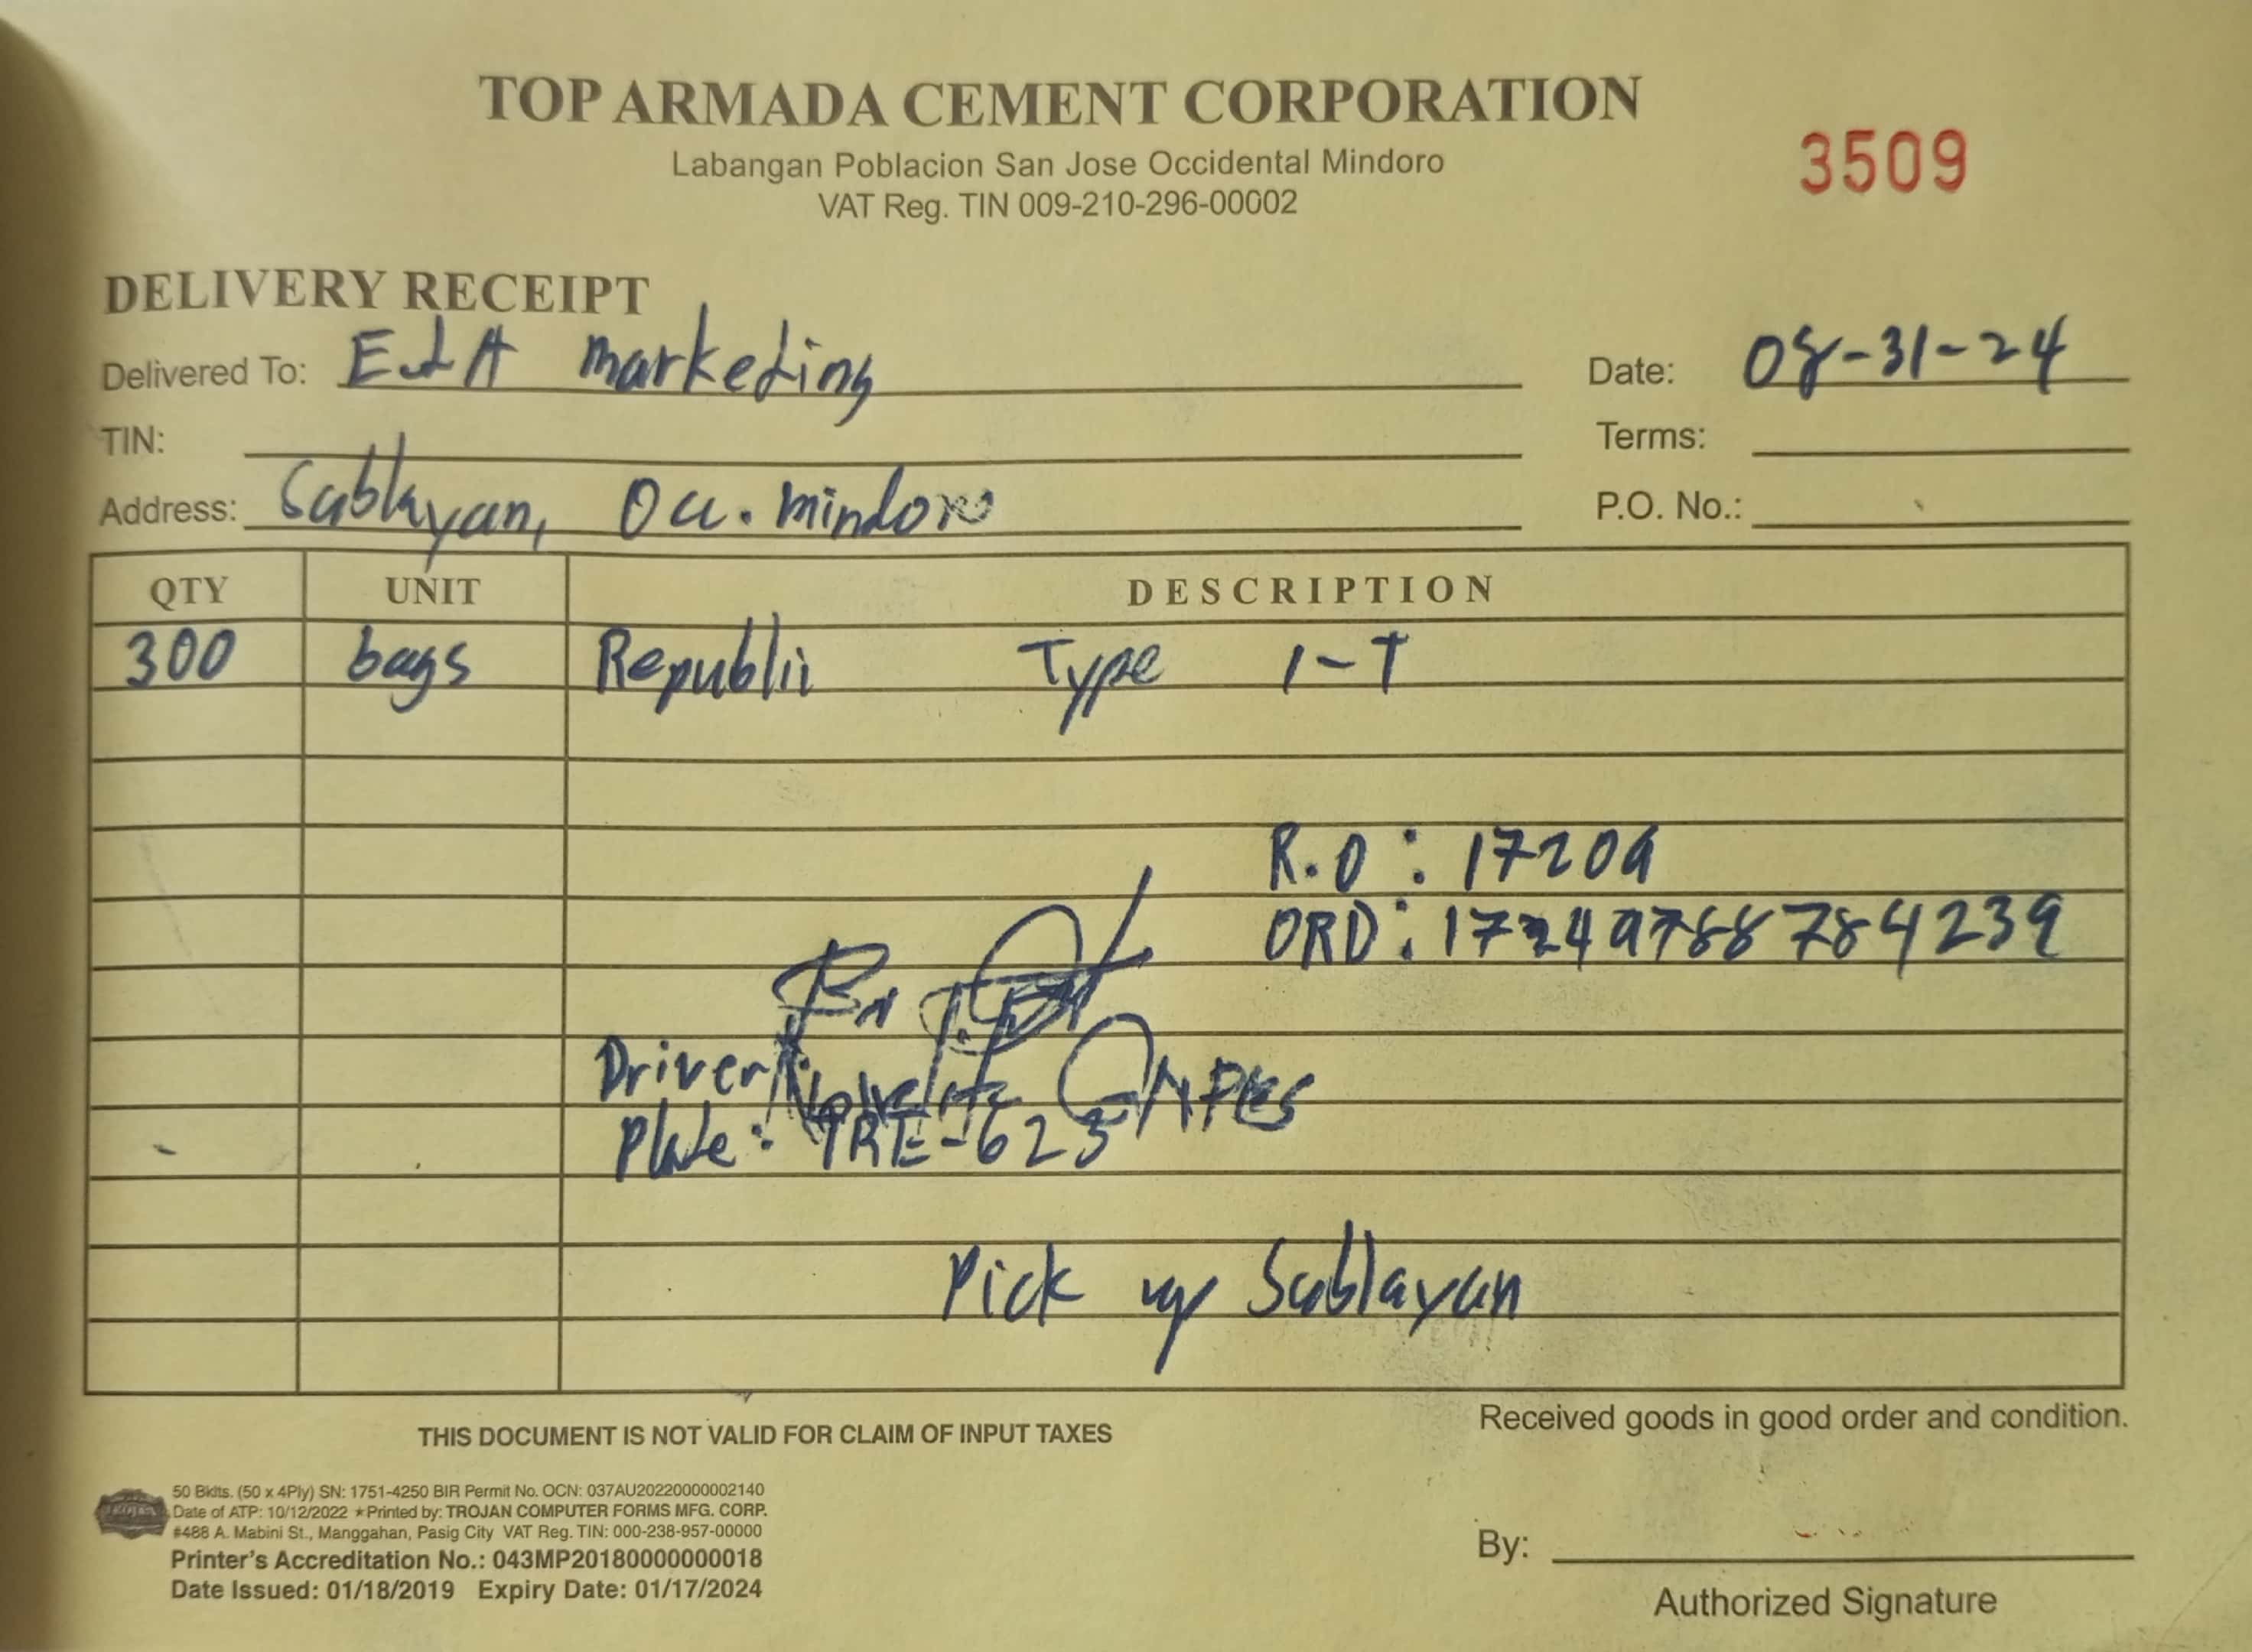 TOP ARMADA CEMENT CORPORATION
Labangan Poblacion San Jose Occidental Mindoro
VAT Reg. TIN 009-210-296-00002
3509
DELIVERY RECEIPT
Delivered To: marketing
Date: 08-31-24
TIN:
Terms:
Address: Sablayan, Occ. Mindoro
P.O. No.:
QTY UNIT DESCRIPTION
300 bags Republic Type 1-T
R.O: 17209
ORD: 17249788784239
Driver:
Plate: TRE-623
Pick up Sablayan
THIS DOCUMENT IS NOT VALID FOR CLAIM OF INPUT TAXES
Received goods in good order and condition.
50 Bklts. (50 x 4Ply) SN: 1751-4250 BIR Permit No. OCN: 037AU20220000002140
Date of ATP: 10/12/2022 ★Printed by: TROJAN COMPUTER FORMS MFG. CORP.
#488 A. Mabini St., Manggahan, Pasig City VAT Reg. TIN: 000-238-957-00000
Printer's Accreditation No.: 043MP20180000000018
Date Issued: 01/18/2019 Expiry Date: 01/17/2024
By:
Authorized Signature